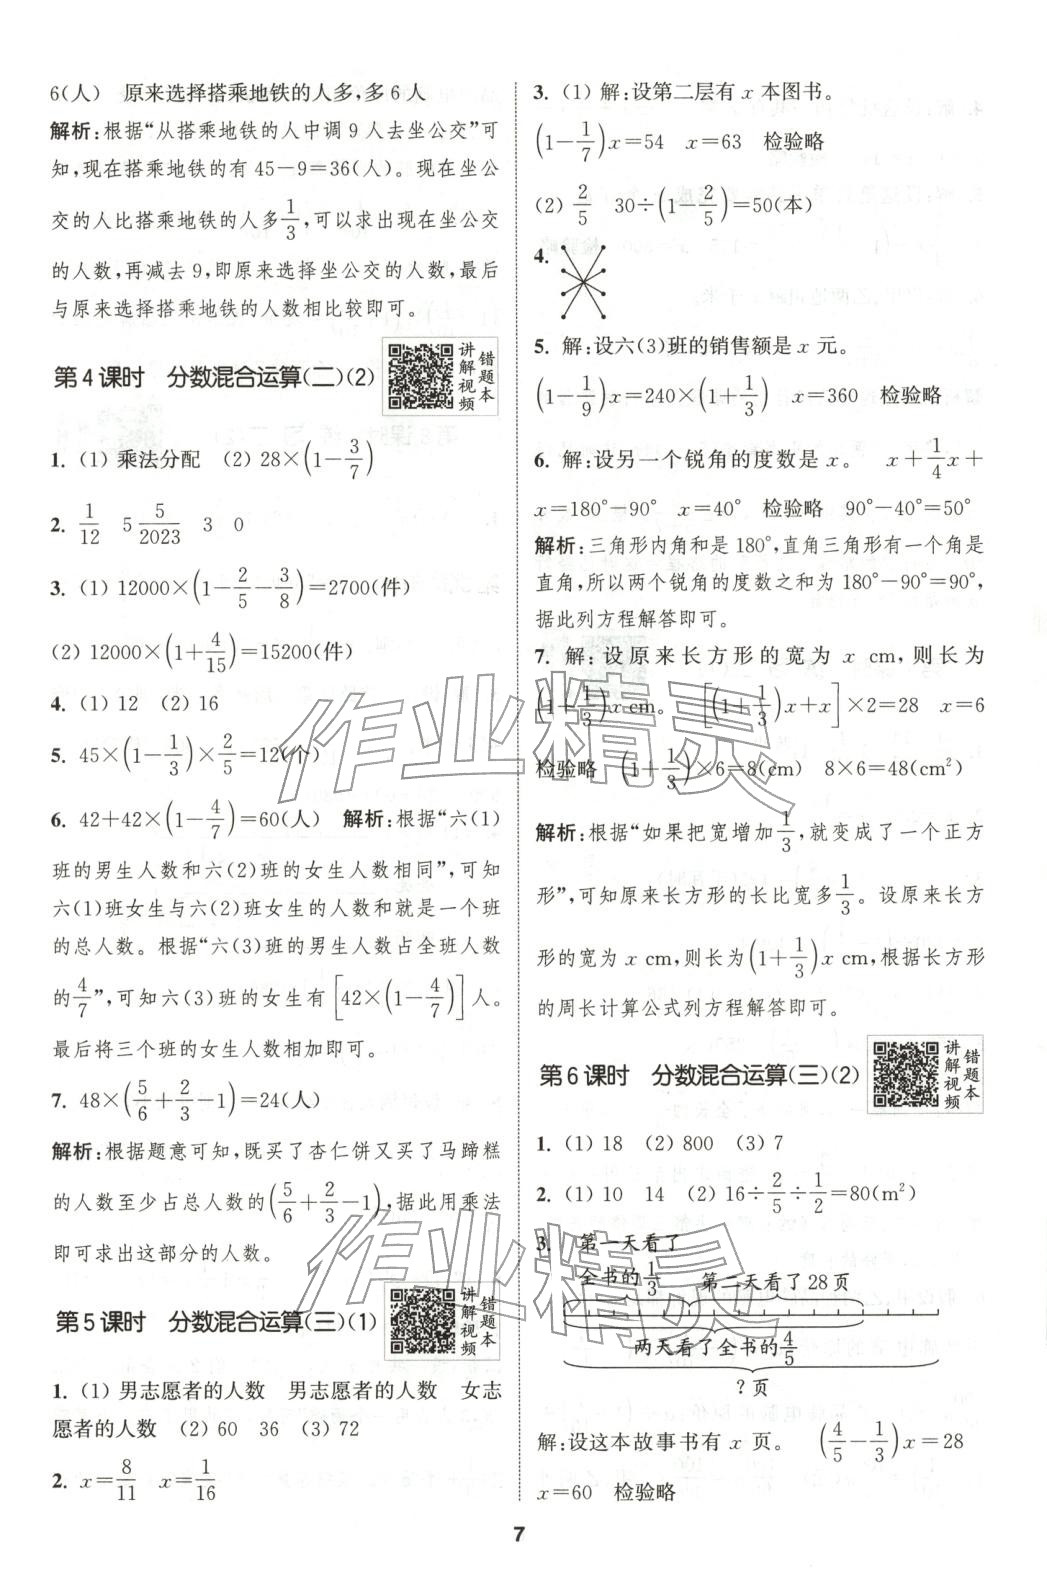 6(人)　原来选择搭乘地铁的人多,多 6 人
解析:根据“从搭乘地铁的人中调 9 人去坐公交”可
知,现在搭乘地铁的有 45－9＝36(人)。现在坐公
交的人比搭乘地铁的人多1/3,可以求出现在坐公交
的人数,再减去 9,即原来选择坐公交的人数,最后
与原来选择搭乘地铁的人数相比较即可。
第 4 课时　分数混合运算(二)(2)
讲解视频
错题本
1. (1) 乘法分配　(2) 28×(1－3/7)
2. 1/12　5　5/2023　3　0
3. (1) 12000×(1－2/5－3/8)＝2700(件)
(2) 12000×(1＋4/15)＝15200(件)
4. (1) 12　(2) 16
5. 45×(1－1/3)×2/5＝12(个)
6. 42＋42×(1－4/7)＝60(人)　解析:根据“六(1)
班的男生人数和六(2)班的女生人数相同”,可知
六(1)班女生与六(2)班女生的人数和就是一个班
的总人数。根据“六(3)班的男生人数占全班人数
的4/7”,可知六(3)班的女生有[42×(1－4/7)]人。
最后将三个班的女生人数相加即可。
7. 48×(5/6＋2/3－1)＝24(人)
解析:根据题意可知,既买了杏仁饼又买了马蹄糕
的人数至少占总人数的(5/6＋2/3－1),据此用乘法
即可求出这部分的人数。
第 5 课时　分数混合运算(三)(1)
讲解视频
错题本
1. (1) 男志愿者的人数　男志愿者的人数　女志
愿者的人数　(2) 60　36　(3) 72
2. x＝8/11　x＝1/16
3. (1) 解:设第二层有 x 本图书。
(1－1/7)x＝54　x＝63　检验略
(2) 2/5　30÷(1－2/5)＝50(本)
4.
5. 解:设六(3)班的销售额是 x 元。
(1－1/9)x＝240×(1＋1/3)　x＝360　检验略
6. 解:设另一个锐角的度数是 x。　x＋1/4x＋
x＝180°－90°　x＝40°　检验略　90°－40°＝50°
解析:三角形内角和是 180°,直角三角形有一个角是
直角,所以两个锐角的度数之和为 180°－90°＝90°,
据此列方程解答即可。
7. 解:设原来长方形的宽为 x cm,则长为
(1＋1/3)x cm。　[(1＋1/3)x＋x]×2＝28　x＝6
检验略　(1＋1/3)×6＝8(cm)　8×6＝48(cm²)
解析:根据“如果把宽增加1/3,就变成了一个正方
形”,可知原来长方形的长比宽多1/3。设原来长方
形的宽为 x cm,则长为(1＋1/3)x cm,根据长方形
的周长计算公式列方程解答即可。
第 6 课时　分数混合运算(三)(2)
讲解视频
错题本
1. (1) 18　(2) 800　(3) 7
2. (1) 10　14　(2) 16÷2/5÷1/2＝80(m²)
3. 第一天看了
全书的1/3　第二天看了 28 页
两天看了全书的4/5
? 页
解:设这本故事书有 x 页。　(4/5－1/3)x＝28
x＝60　检验略
7
作业精灵
作业精灵